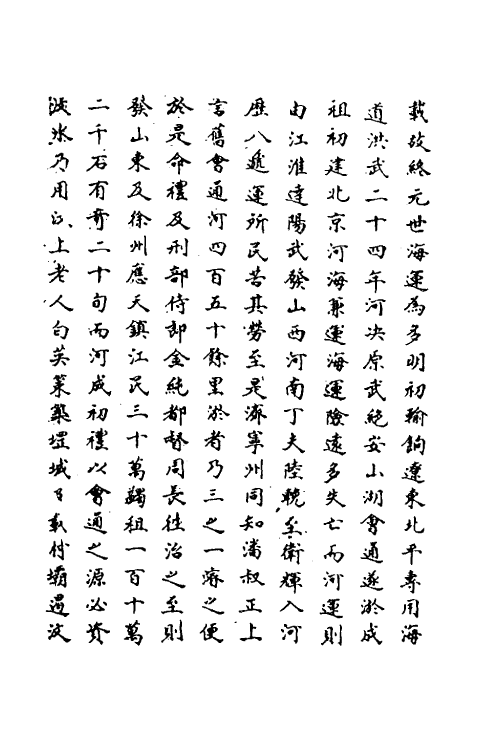 載故終元世海運為多明初輸餉遼東北平専用海
道洪武二十四年河决原武絶安山湖會通遂淤成
祖初建北京河海兼運海運險遠多失亡而河運則
由江淮達陽武發山西河南丁夫陸輓至衛輝入河
歴八遞運所民苦其勞至是濟寧州同知潘叔正上
言舊會通河四百五十餘里淤者乃三之一濬之便
於是命禮及刑部侍郎金純都督周長徃治之至則
發山東及徐州應天鎮江民三十萬蠲租一百十萬
二千石有奇二十旬而河成初禮以會通之源必資
汶水乃用汶上老人白英策築堽城及戴村壩遏汶